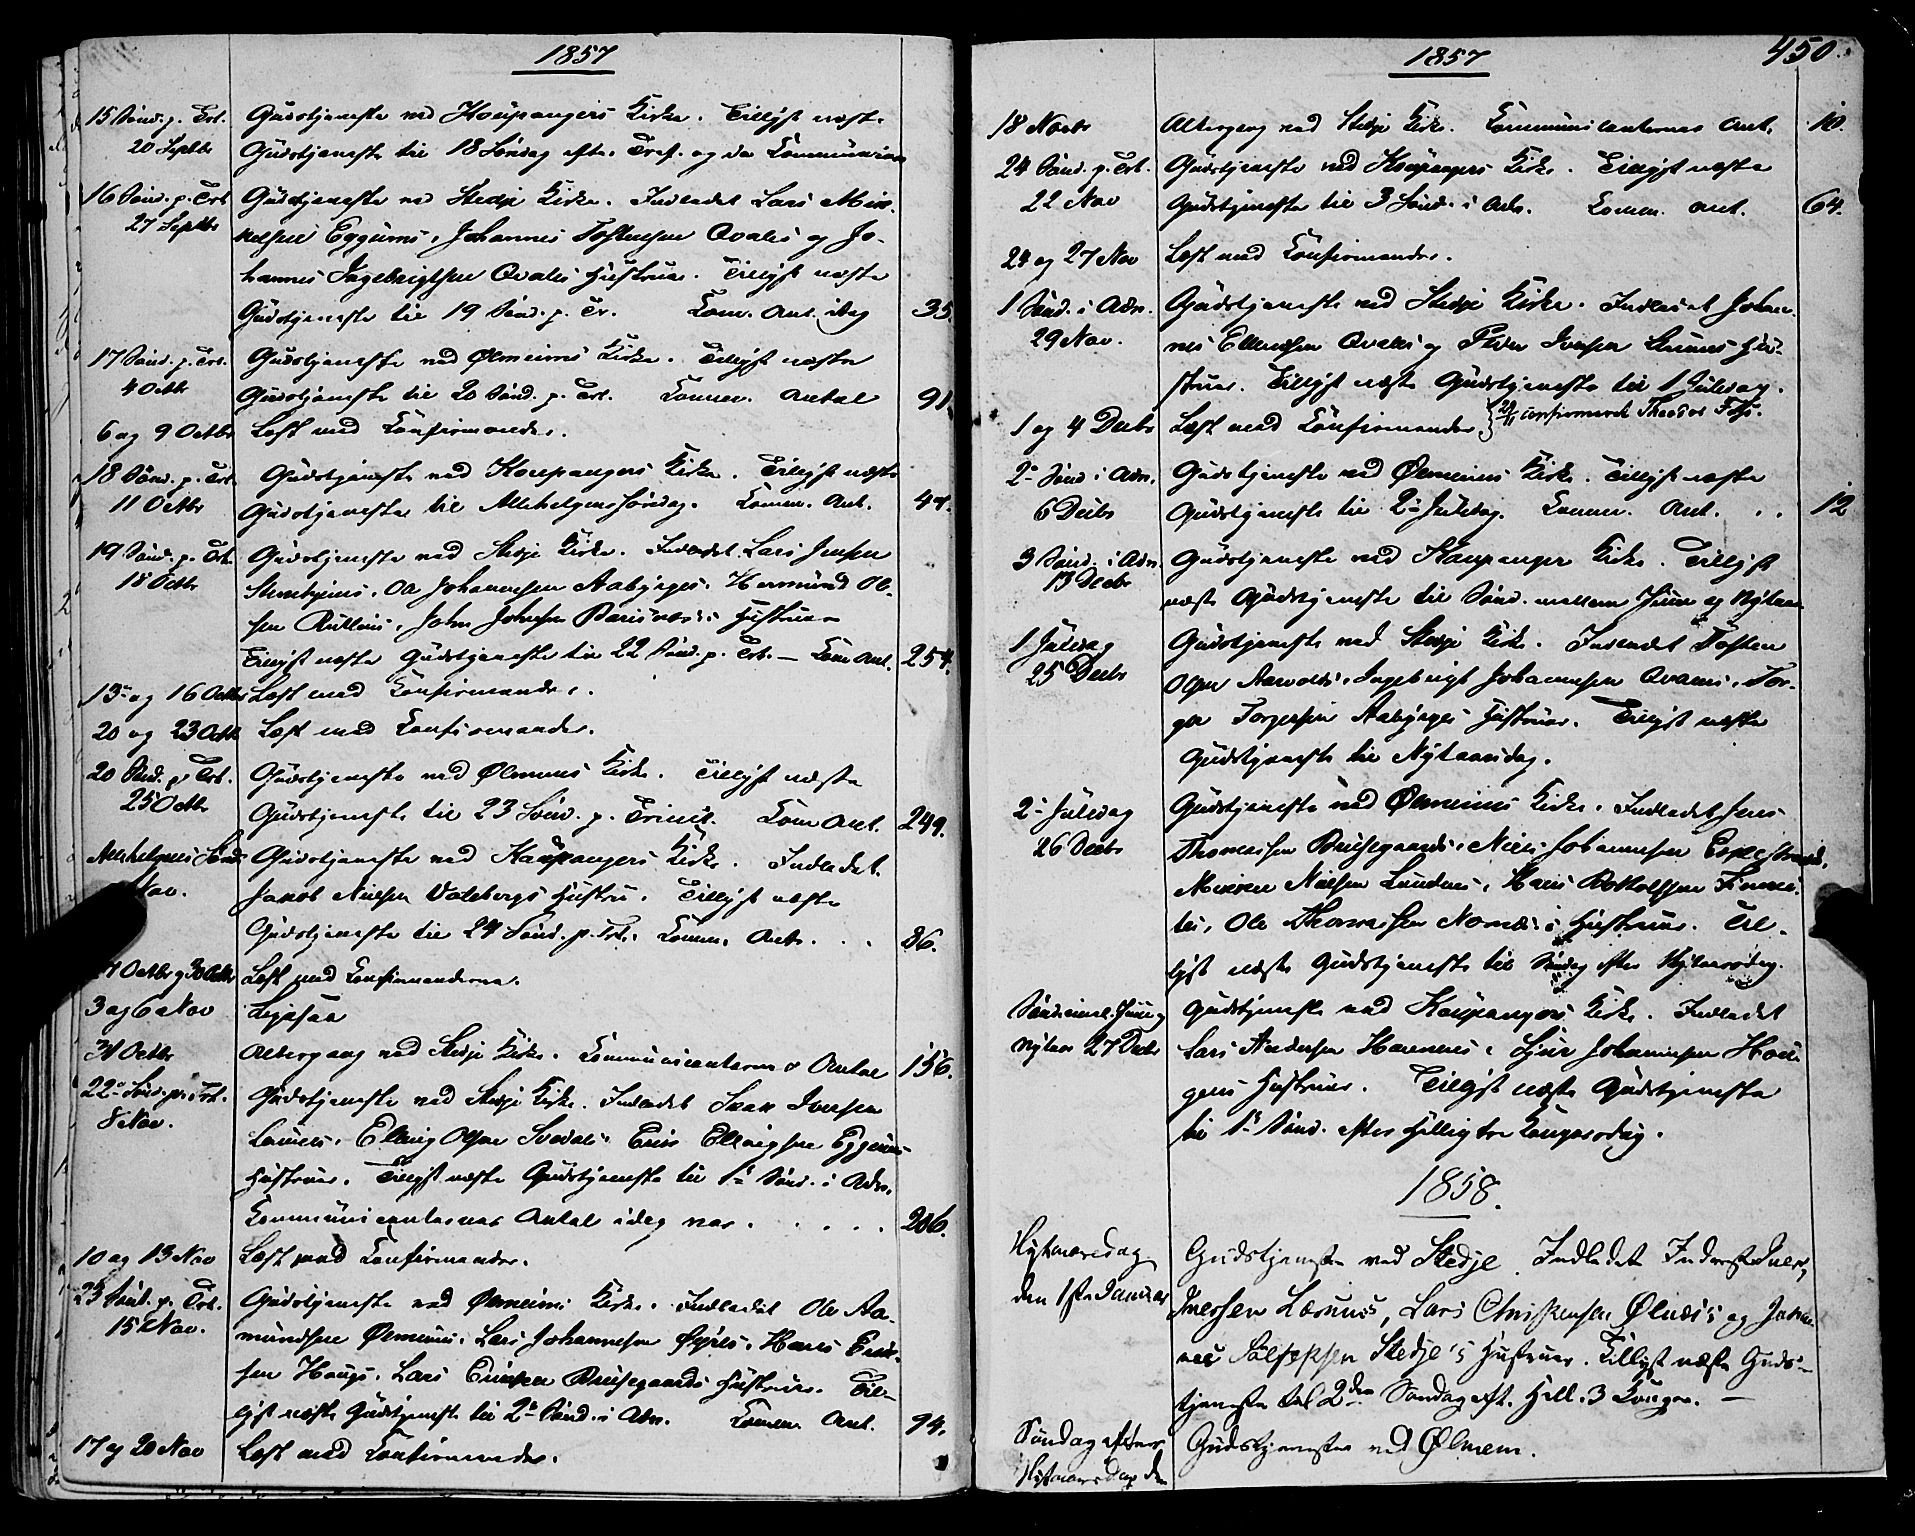 1857
15 Sönd. p. Trt. Gudstjeneste ved Kaupangers Kirke. Tillyst næste
20 Septbr Gudstjeneste til 18 Söndag efter Tref. og da Communion
16 Sönd. p. Trt Gudstjeneste ved Stedje Kirke. Indledet Lars
27 Septbr Eggums, Johannes Tostensen Qvales og Jo-
hannes Ingebrigtsen Qvales Hustruer. Tillyst næste
Gudstjeneste til 19 Sönd. p. Tr. Com. Ant. idag 35.
17 Sönd. p. Trt. Gudstjeneste ved Ølmeims Kirke. Tillyst næste
4 Octbr Gudstjeneste til 20 Sönd. p. Trt. Commun. Antal 91
6 og 9 Octbr Læst med Confirmander.
18 Sönd. p. Trt. Gudstjeneste ved Kaupangers Kirke. Tillyst næste
11 Octbr Gudstjeneste til Allehelgens Söndag. Comm. Ant.
19 Sönd. p. Trt. Gudstjeneste ved Stedje Kirke. Indledet Lars Jensen
18 Octbr Ole Johannesen Aabýrges, Hermund Ol-
sen Rutlins, John Johnsen Hustruer
Tillyst næste Gudstjeneste til 22 Sönd. p. Trt. – Com Ant. 254.
13 og 16 Octbr Læst med Confirmander.
20 og 23 Octbr Læst med Confirmander.
20 Sönd. p. Trt. Gudstjeneste ved Ølmeims Kirke. Tillyst næste
25 Octbr Gudstjeneste til 23 Sönd. p. Trinit. Com Ant. 249.
Allehelgens Sönd Gudstjeneste ved Kaupangers Kirke. Indledet
Nov. Jakob Nielsen Hustru. Tillyst næste
Gudstjeneste til 24 Sönd. p. Trt. Comm. Antr. . . 86.
Octbr og 30 Octbr Læst med Confirmanderne.
3 og 6 Nov Ligesaa
31 Octbr Altergang ved Stedje Kirke. Communicanternes Antal 156.
22 Sönd. p. Trt. Gudstjeneste ved Stedje Kirke. Indledet Iversen
8 Nov. Elling Olsen Ellingsen Eggums
Hustruer. Tillyst næste Gudstjeneste til 1ste Sönd. i Adv.
Communicanternes Antal idag var . . . . . 206.
10 og 13 Nov Læst med Confirmander.
23 Sönd. p. Trt. Gudstjeneste ved Ølmeims Kirke. Indledet Ole Aa-
15 Nov. mundsen Ølmeims, Lars Johannesen Hans Erik-
sen Haugs, Lars Hustruer. Til-
lyst næste Gudstjeneste til 2den Sönd. i Adv. Comm. Ant. 94.
17 og 20 Nov Læst med Confirmander.
1857 450.
18 Novbr Altergang ved Stedje Kirke. Communicanternes Ant. 10.
24 Sönd. p. Trt. Gudstjeneste ved Kaupangers Kirke. Tillyst næste
22 Nov Gudstjeneste til 3 Sönd. i Adv. Comm. Ant. 64.
24 og 27 Nov Læst med Confirmander.
1 Sönd. i Adv. Gudstjeneste ved Stedje Kirke. Indledet Johan-
29 Nov. nes Ellensen Qvales og Peder Iversen Hu-
struer. Tillyst næste Gudstjeneste til 1 Juledag.
1 og 4 Decbr Læst med Confirmander. { confirmerede Theodor
2 Sönd. i Adv. Gudstjeneste ved Ølmeims Kirke. Tillyst næste
6 Decbr Gudstjeneste til 2 Juledag. Comm. Ant. . . 12
3 Sönd. i Adv. Gudstjeneste ved Kaupanger Kirke. Tillyst
13 Decbr næste Gudstjeneste til Sönd. mellem Juul og Nýtaar
1 Juledag Gudstjeneste ved Stedje Kirke. Indledet Tosten
25 Decbr Olsen Ingebrigt Johannesen Qvames, Tor-
ger Torgersen Aabýrges Hustruer. Tillyst næste
Gudstjeneste til Nýtaarsdag.
2 Juledag Gudstjeneste ved Ølmeims Kirke. Indledet Jens
26 Decbr Thomassen Niels Johannesen
Nielsen Lundens, Hans
Ole Thomassen Hustruer. Til-
lyst næste Gudstjeneste til Söndag efter Nýtaarsdag.
Sönd. mel. Juul og Gudstjeneste ved Kaupangers Kirke. Indledet
Nýtaar 27 Decbr Lars Andersen Johannesen Hau-
gens Hustruer. Tillyst næste Gudstjeneste
til 1ste Sönd. efter Hellig tre Kongersdag.
1858.
Nytaarsdag Gudstjeneste ved Stedje. Indledet
den 1ste Januar Iversen Lars Christensen Ølnæs's og Johan-
nes Stedje's Hustruer. Tillyst næste Guds-
tjeneste til 2den Søndag eft. Hell. 3 Konger. –
Søndag efter Gudstjeneste ved Ølmem.
Nytaarsdag den